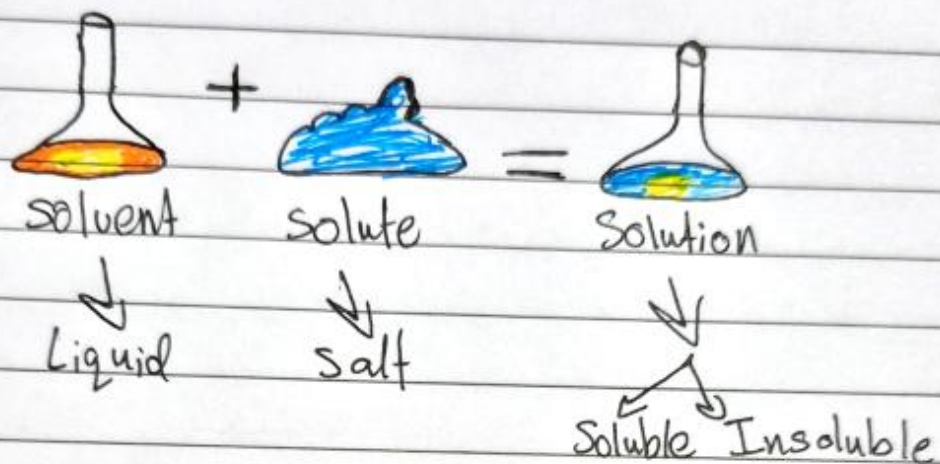 + =
solvent solute Solution
Liquid Salt
Soluble Insoluble